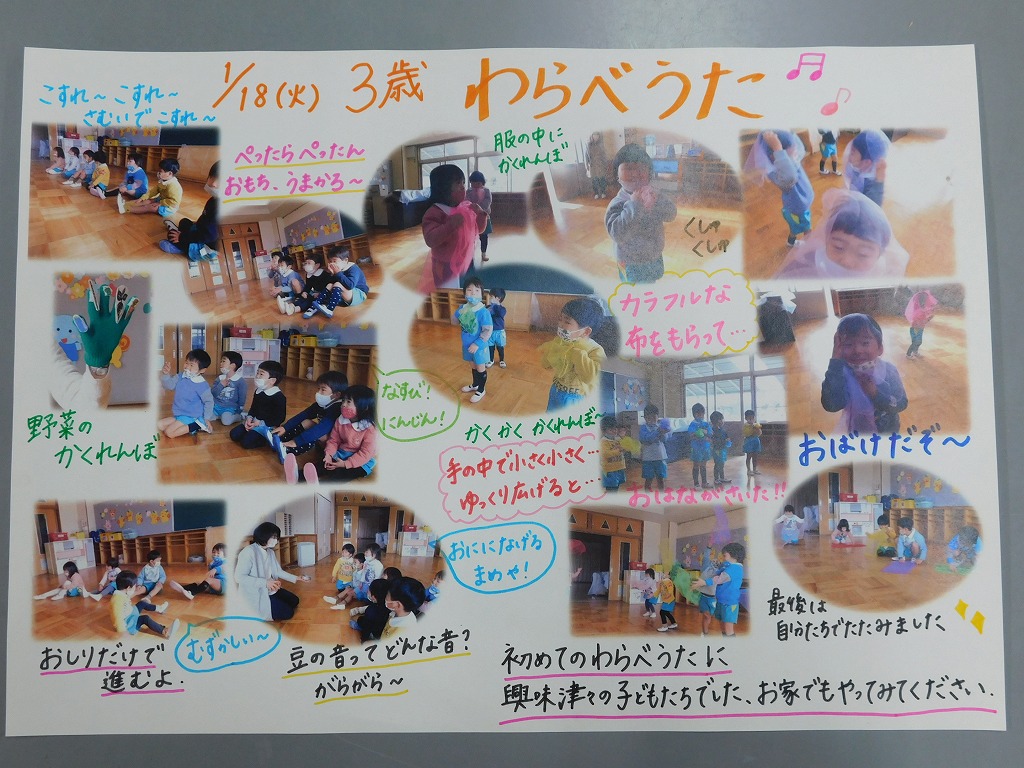 1/18(火) 3歳 わらべうた
こすれ～こすれ～
さむいでこすれ～
ぺったらぺったん
おもち、うまかろ～
服の中に
かくれんぼ
くしゅ
くしゅ
カラフルな
布をもらって…
野菜の
かくれんぼ
なすび!
にんじん!
かくかくかくれんぼ
手の中で小さく小さく…
ゆっくり広げると…
おはながさいた!!
おばけだぞ～
おしりだけで
進むよ.
むずかしい～
豆の音ってどんな音?
がらがら～
おにになげる
まめや!
最後は
自分たちでたたみました
初めてのわらべうたに
興味津々の子どもたちでした、お家でもやってみてください.